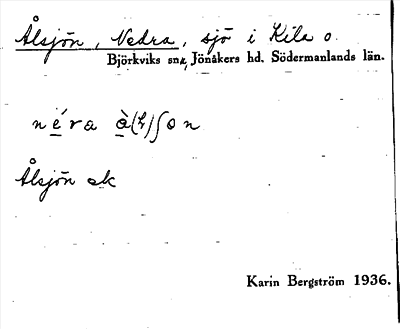 Ålsjön, Nedra, sjö i Kila o
Björkviks snr, Jönåkers hd. Södermanlands län.
néra à(l)ʃon
Ålsjön ek
Karin Bergström 1936.